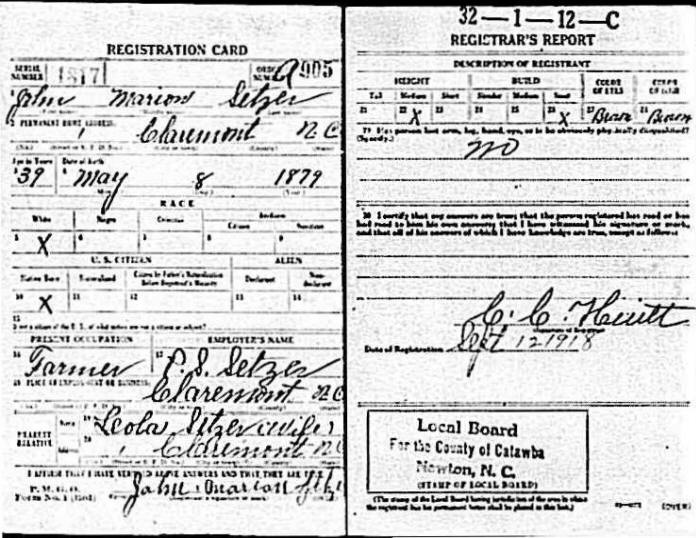 REGISTRATION CARD
SERIAL NUMBER 1817 ORDER NUMBER A905
1 John Marion Setzer
2 PERMANENT HOME ADDRESS:
Claremont N C
Age in Years Date of Birth
39 May 8 1879
RACE
White Negro Oriental Indian
Citizen Noncitizen
5 X 6 7 8 9
U. S. CITIZEN ALIEN
Native Born Naturalized Citizen by Father's Naturalization Before Registrant's Majority Declarant Non-declarant
10 X 11 12 13 14
15
If not a citizen of the U. S., of what nation are you a citizen or subject?
PRESENT OCCUPATION EMPLOYER'S NAME
16 Farmer 17 P. S. Setzer
18 PLACE OF EMPLOYMENT OR BUSINESS:
Claremont N C
NEAREST RELATIVE
Name 19 Leola Setzer (wife)
Address 20 Claremont N C
I AFFIRM THAT I HAVE VERIFIED ABOVE ANSWERS AND THAT THEY ARE TRUE
P. M. G. O.
Form No. 1 (Red)
John Marion Setzer
32—1—12—C
REGISTRAR'S REPORT
DESCRIPTION OF REGISTRANT
HEIGHT BUILD COLOR OF EYES COLOR OF HAIR
Tall Medium Short Slender Medium Stout
21 22 X 23 24 25 26 X 27 Brown 28 Brown
29 Has person lost arm, leg, hand, eye, or is he obviously physically disqualified?
(Specify.)
No
30 I certify that my answers are true; that the person registered has read or has
had read to him his own answers; that I have witnessed his signature or mark,
and that all of his answers of which I have knowledge are true, except as follows:
C. C. Huitt
Signature of Registrar
Date of Registration Sept 12 1918
Local Board
For the County of Catawba
Newton, N. C.
(STAMP OF LOCAL BOARD)
(The stamp of the Local Board having jurisdiction of the area in which
the registrant has his permanent home shall be placed in this box.)
(OVER)